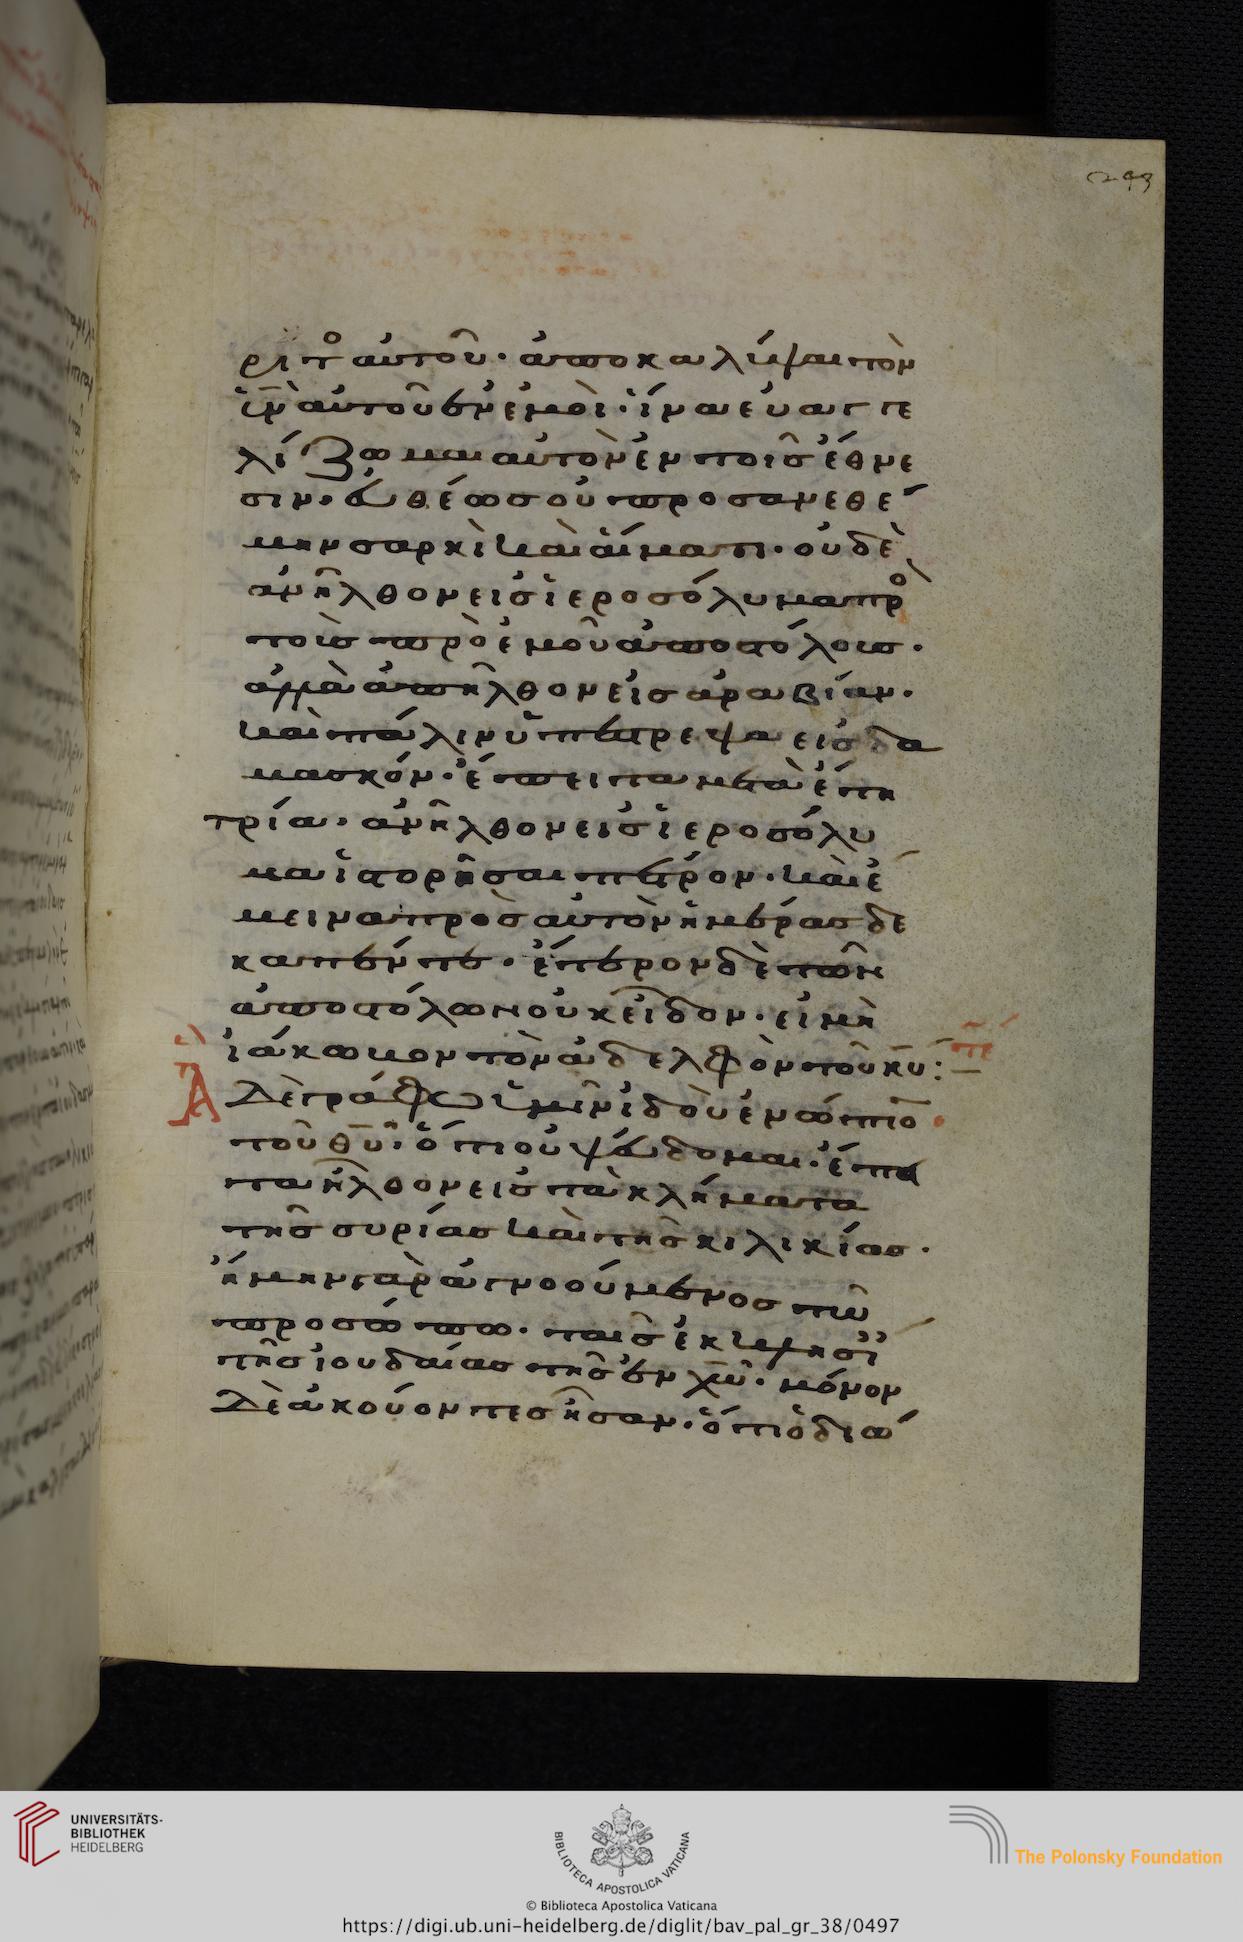 293
ριτο αὐτοῦ· ἀποκαλύψαι τὸν
ὑν̅ αὐτοῦ ἐν ἐμοὶ· ἵνα εὐαγγε
λίζωμαι αὐτὸν ἐν τοῖς ἔθνε
σιν· εὐθέως οὐ προσανεθέ
μην σαρκὶ καὶ αἵματι· οὐδὲ
ἀνῆλθον εἰς ἱεροσόλυμα πρὸ
τοὺς πρὸ ἐμοῦ ἀποστόλους·
ἀλλὰ ἀπῆλθον εἰς ἀραβίαν·
καὶ πάλιν ὑπέστρεψα εἰς δα
μασκόν· ἔπειτα μετὰ ἔτη
τρία· ἀνῆλθον εἰς ἱεροσόλυ
μα ἱστορῆσαι πέτρον· καὶ ἔ
μεινα πρὸς αὐτὸν ἡμέρας δε
καπέντε· ἕτερον δὲ τῶν
ἀποστόλων οὐκ εἶδον· εἰ μὴ
ἰάκωβον τὸν ἀδελφὸν τοῦ κυ̅:
Ἃ δὲ γράφω ὑμῖν ἰδοὺ ἐνώπιο
τοῦ θυ̅· ὅτι οὐ ψεύδομαι· ἔπει
τα ἦλθον εἰς τὰ κλήματα
τῆς συρίας καὶ τῆς κιλικίας·
ἤμην γὰρ ἀγνοούμενος τῶ
προσώπω· ταῖς ἐκκλησί
τῆς ἰουδαίας τῆς ἐν χω̅· μόνον
δὲ ἀκούοντες ἦσαν· ὅτι ὁ διώ
UNIVERSITÄTS-
BIBLIOTHEK
HEIDELBERG
BIBLIOTECA APOSTOLICA VATICANA
The Polonsky Foundation
© Biblioteca Apostolica Vaticana
https://digi.ub.uni-heidelberg.de/diglit/bav_pal_gr_38/0497